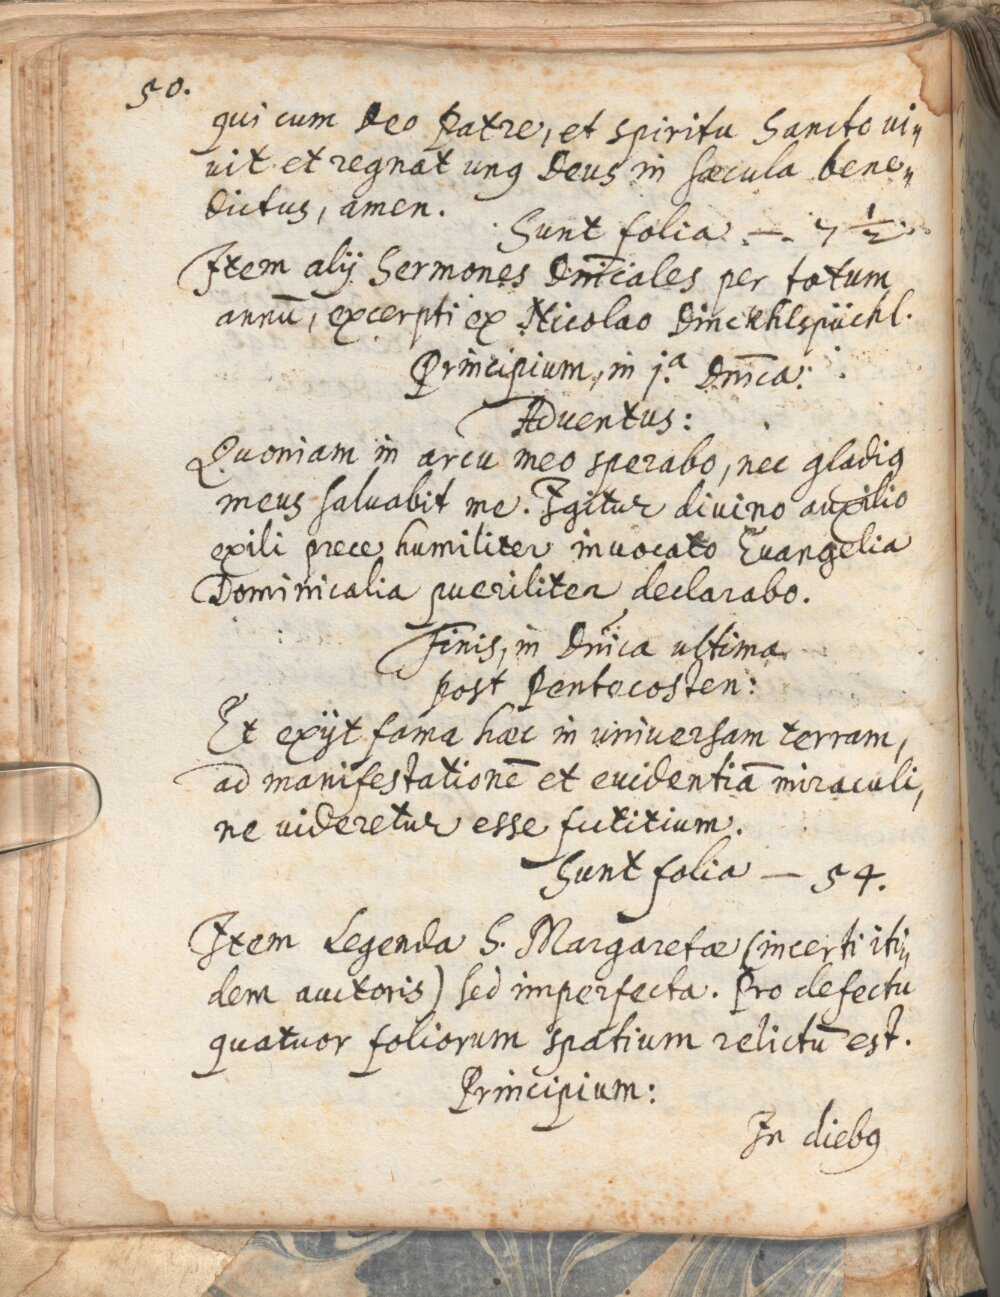 50.
qui cum Deo Patre, et spiritu Sancto vi„
vit et regnat unꝯ Deus in sæcula bene„
dictus, amen.
Sunt folia — 7 1/2.
Item alij Sermones Dnĩcales per totum
annũ, excerpti ex Nicolao Dinckhlspüchl.
Principium, in j.ª Dnĩca:
Aduentus:
Quoniam in arcu meo sperabo, nec gladiꝯ
meus saluabit me. Igitur diuino auxilio
exili prece humiliter inuocato Euangelia
Dominicalia pueriliter declarabo.
Finis, in Dnĩca ultima
post Pentecosten:
Et exijt fama hæc in vniuersam terram,
ad manifestationẽ et euidentiã miraculi,
ne uideretur esse fictitium.
Sunt folia — 54.
Item Legenda S. Margaretæ (incerti iti„
dem auctoris) sed imperfecta. Pro defectu
quatuor foliorum spatium relictũ est.
Principium:
In diebꝯ